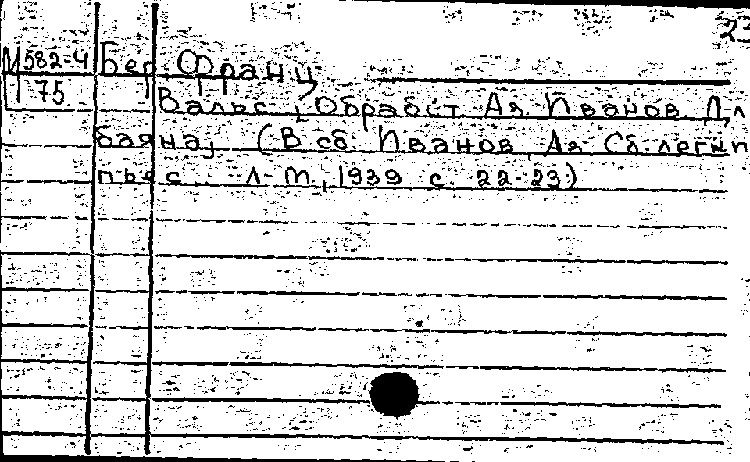 23
М 582-4 Бер. Франц
75
Вальс, Обработ. Ал. Иванов Дл
баяна, (В сб. Иванов, Ал. Сб. легк
пьес. Л-М., 1939 с. 22-23)